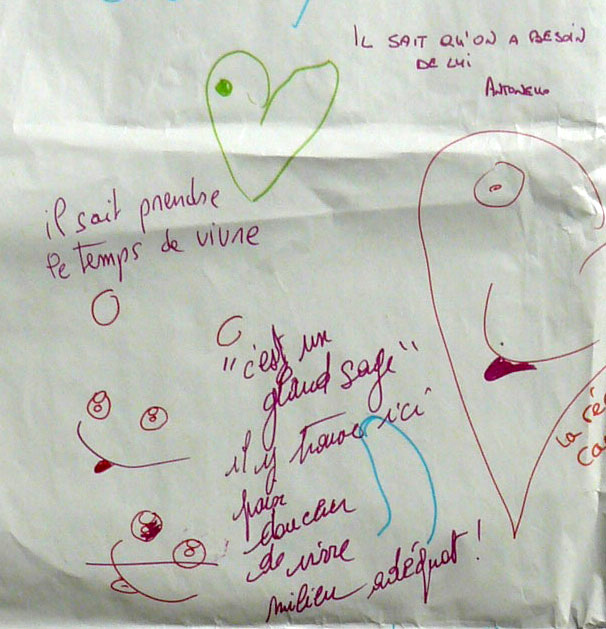 IL SAIT QU'ON A BESOIN
DE LUI
ANTONELLO
il sait prendre
le temps de vivre
"c'est un
grand sage"
il y trouve ici
paix
douceur
de vivre
milieu adéquat !
la ré
ca